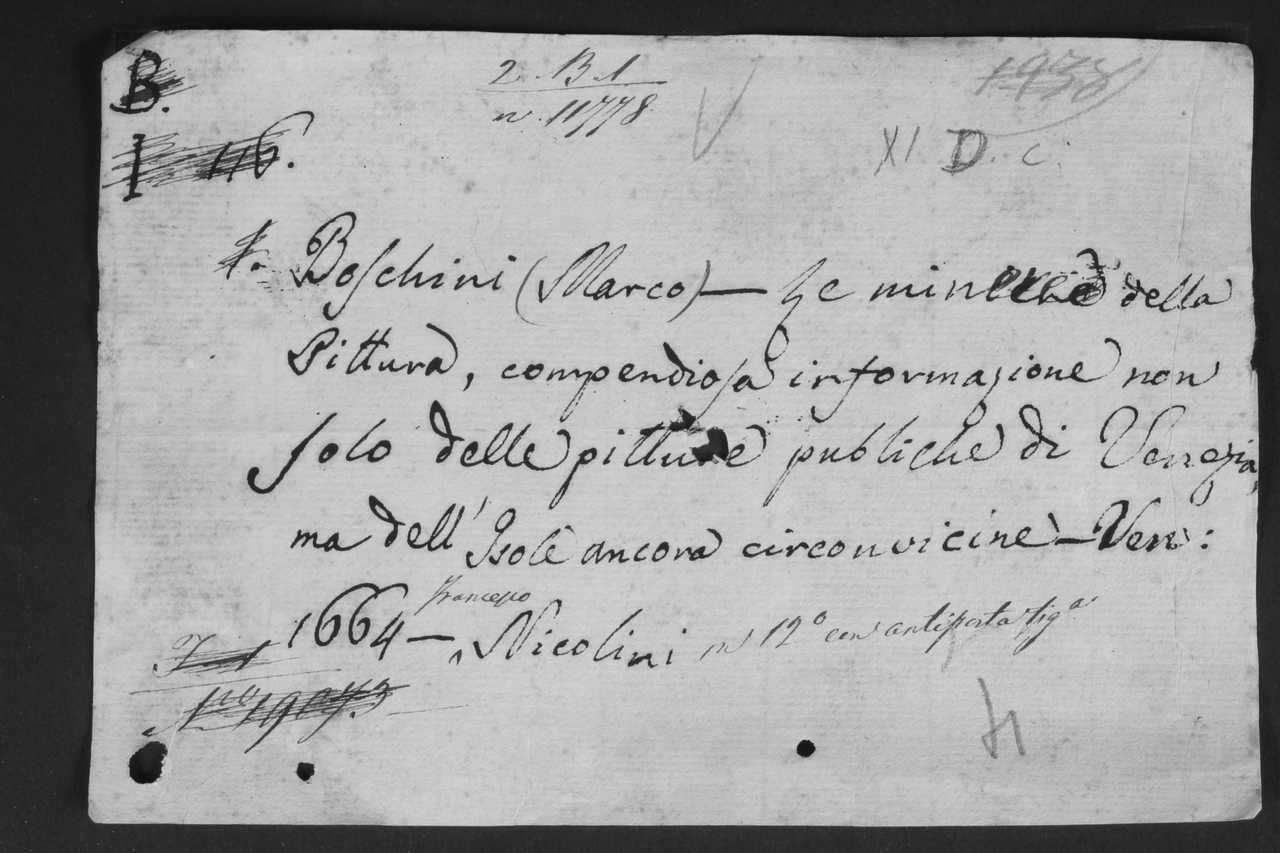 B.
2. B 1
n. 11778
1938
XI. D. C.
I 116.
Boschini (Marco) — Le minere della
Pittura, compendiosa informazione non
solo delle pitture publiche di Venezia,
ma dell' Isole ancora circonvicine — Ven:
1664 — Francesco Nicolini in 12º con antiporta figª